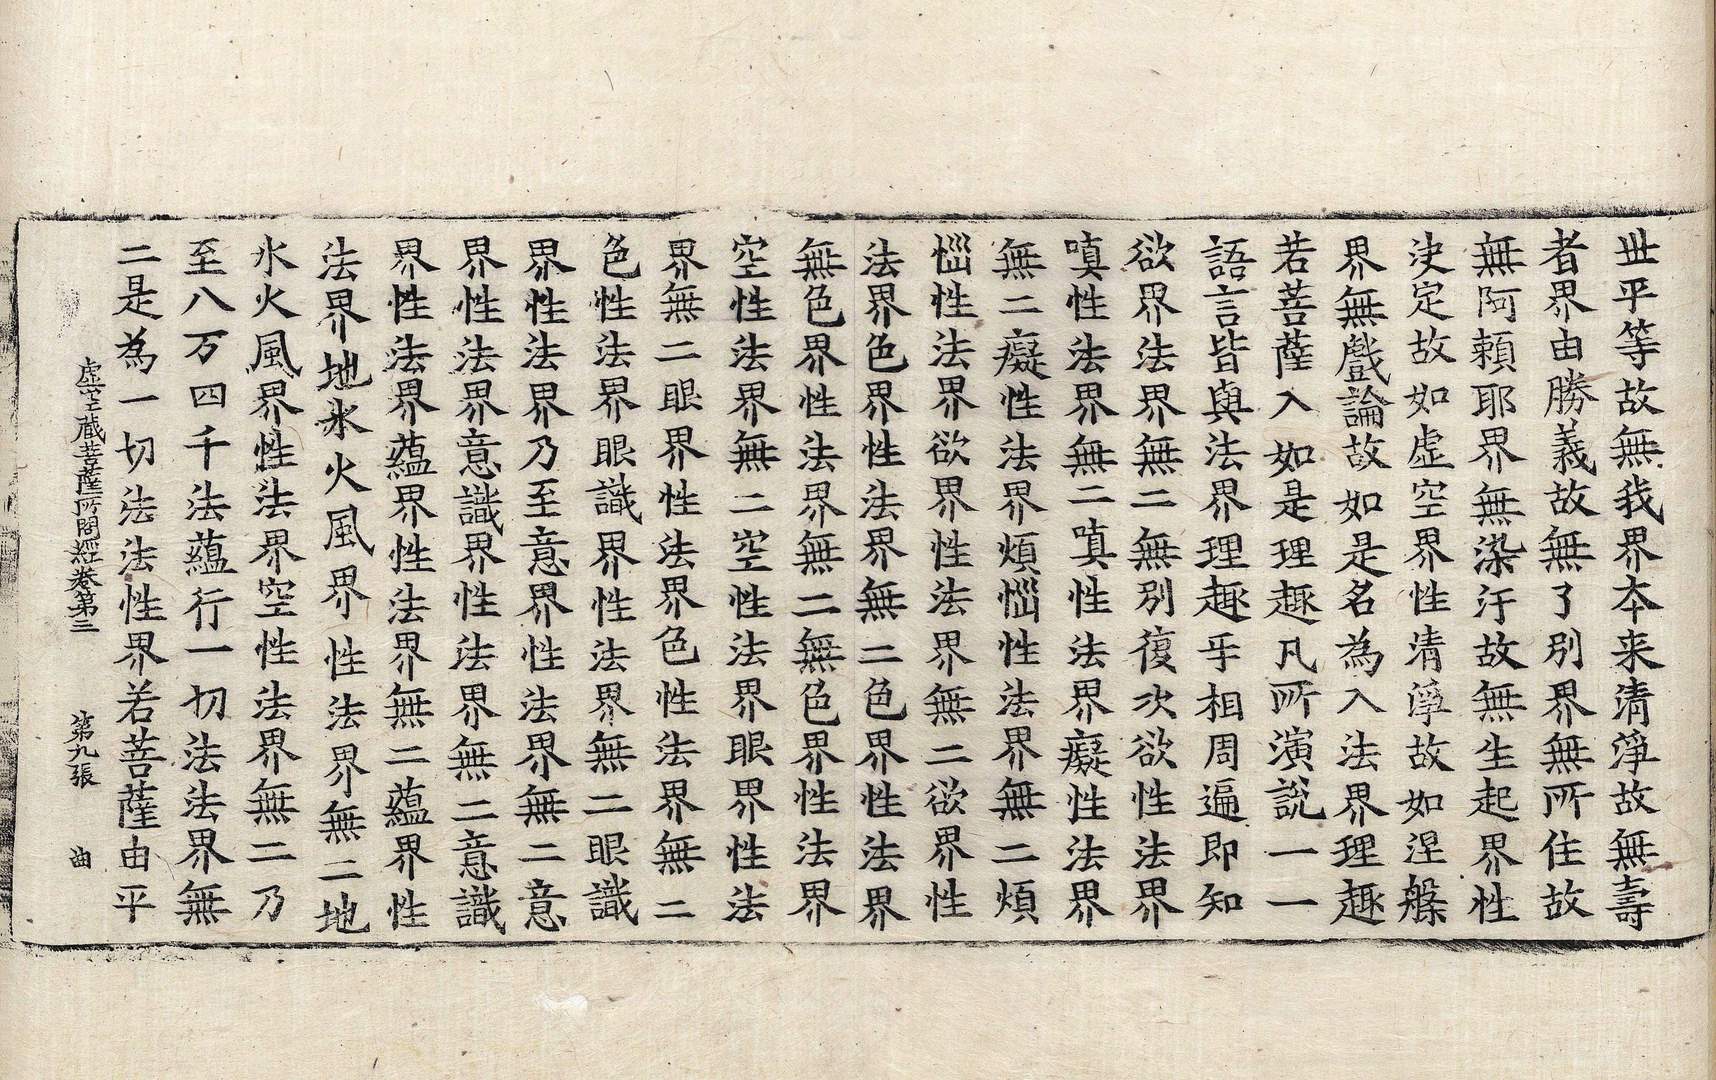 世平等故無我界本来清淨故無壽
者界由勝義故無了別界無所住故
無阿頼耶界無染汙故無生起界性
決定故如虛空界性清淨故如涅槃
界無戲論故如是名為入法界理趣
若菩薩入如是理趣凡所演說一一
語言皆與法界理趣乎相周遍即知
欲界法界無二無別復次欲性法界
嗔性法界無二嗔性法界癡性法界
無二癡性法界煩惱性法界無二煩
惱性法界欲界性法界無二欲界性
法界色界性法界無二色界性法界
無色界性法界無二無色界性法界
空性法界無二空性法界眼界性法
界無二眼界性法界色性法界無二
色性法界眼識界性法界無二眼識
界性法界乃至意界性法界無二意
界性法界意識界性法界無二意識
界性法界蘊界性法界無二蘊界性
法界地水火風界性法界無二地
水火風界性法界空性法界無二乃
至八万四千法蘊行一切法法界無
二是為一切法法性界若菩薩由平
虛空藏菩薩所問經卷第三 第九張 曲